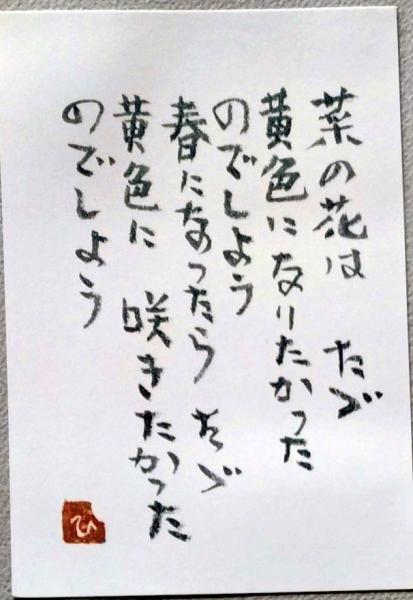 菜の花は　ただ
黄色になりたかった
のでしょう
春になったら　ただ
黄色に　咲きたかった
のでしょう
ひ